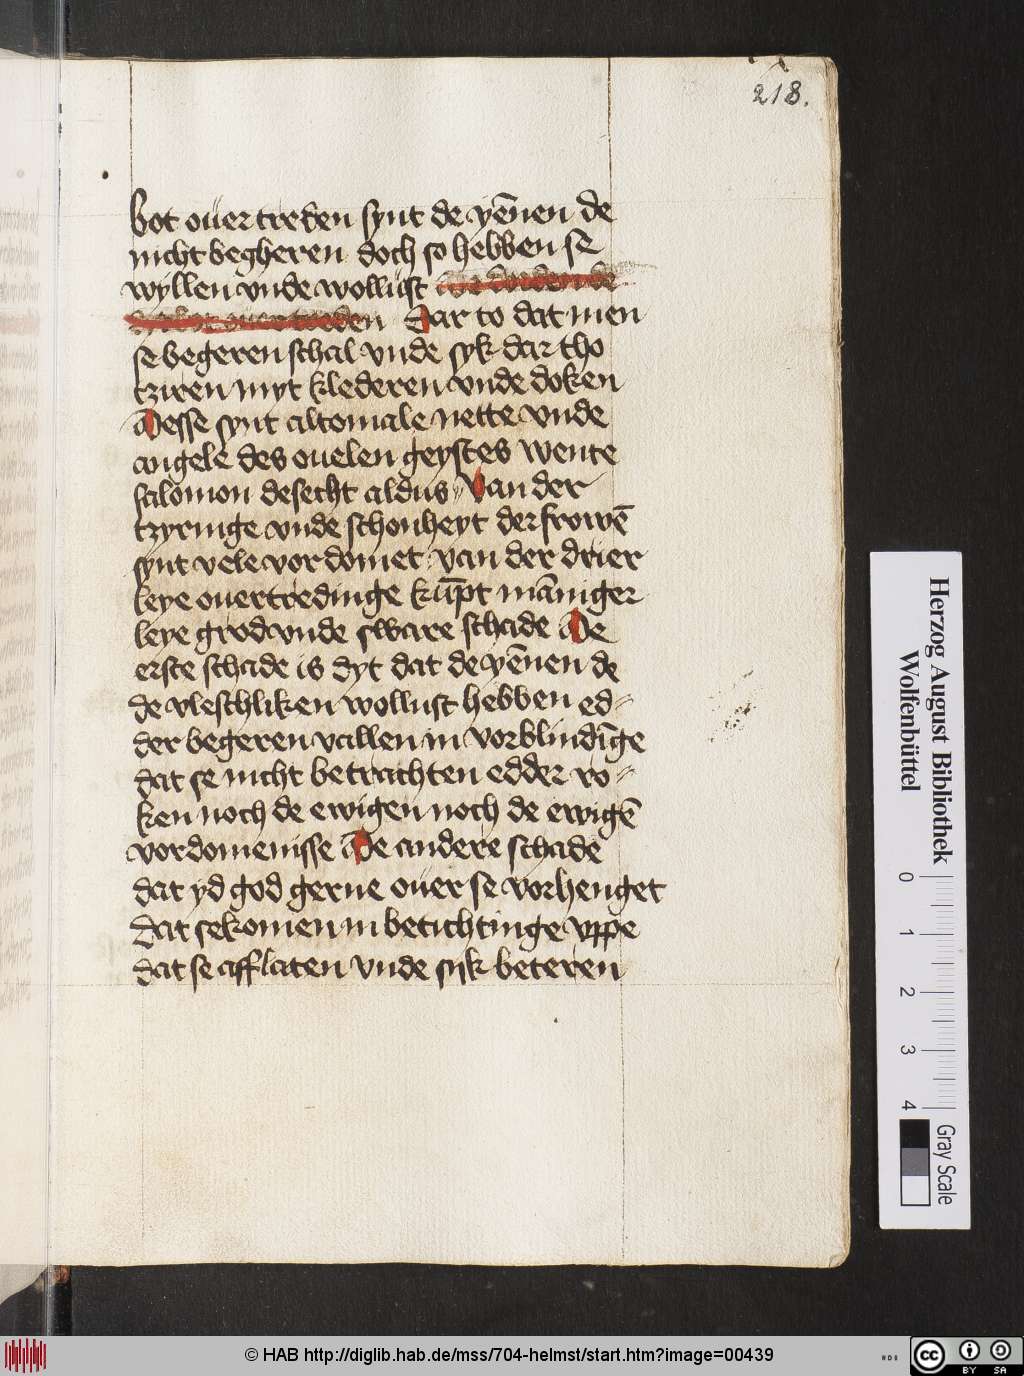 218.
bot ouertreken synt de yēnen de
nicht begheren doch so hebben se
wyllen vnde wollust
dar to dat men
se begeren schal vnde syk dar tho
tziren myt klederen vnde doken
Desse synt altomale nette vnde
angele des ouelen geystes wente
salomon desecht aldus Van der
tzyringe vnde schonheyt der frowē
synt vele vordomet van der drier
leye ouertredinge kūpt māniger
leye grod vnde sware schade De
erste schade is dyt dat de yēnen de
de vleschliken wollust hebben ed⸗
der begeren vallen in vorblindīge
dat se nicht betrachten edder ro⸗
ken noch de ewigen noch de ewigē
vordomenisse De andere schade
dat yd god gerne ouer se vorhenget
dat se komen in betichtinge vppe
dat se afflaten vnde syk beteren
Herzog August Bibliothek
Wolfenbüttel
0 1 2 3 4
Gray Scale
© HAB http://diglib.hab.de/mss/704-helmst/start.htm?image=00439
cc BY SA